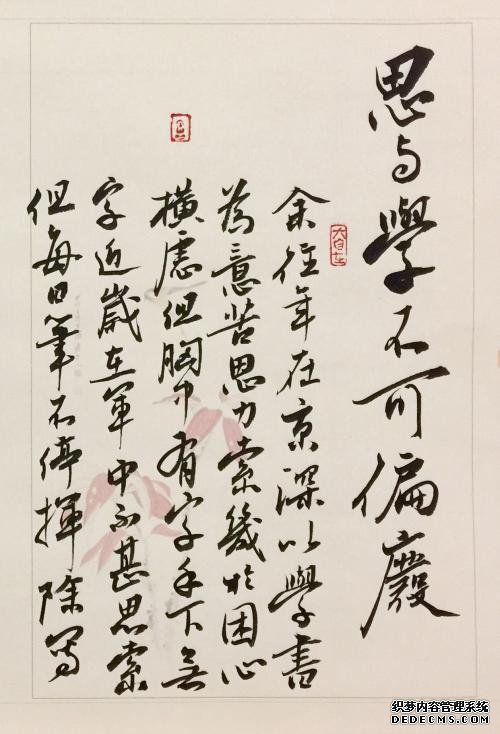 思与學不可偏廢
余往年在京深以學書
為意苦思力索幾於困心
橫慮但胸中有字手下無
字近歲在軍中不甚思索
但每日筆不停揮除寫
大自在
织梦内容管理系统
DEDECMS.COM